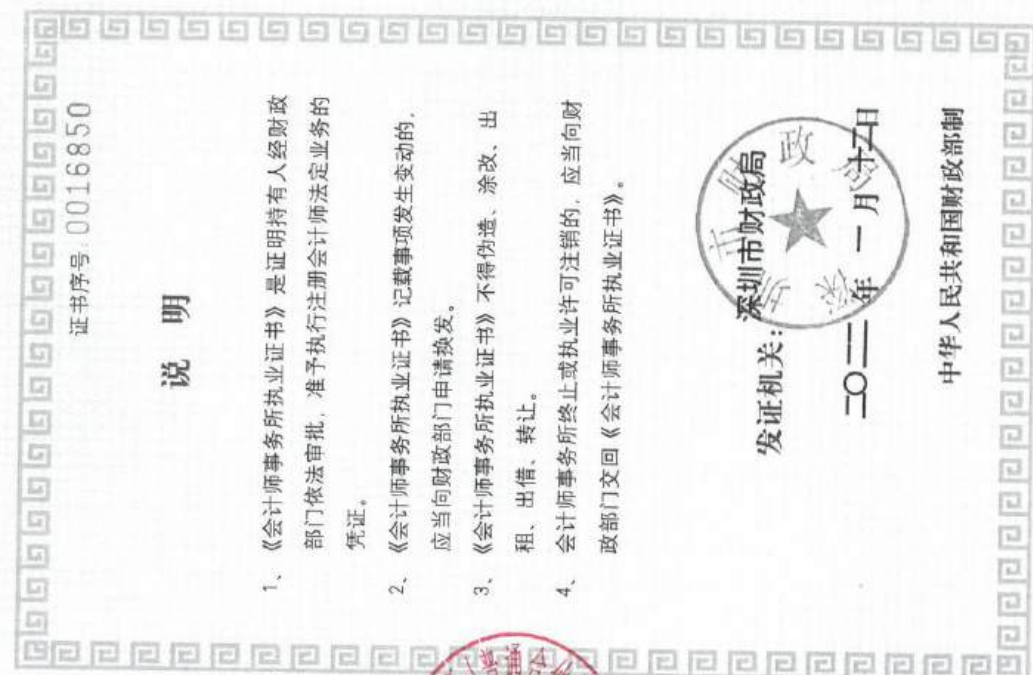 证书序号:0016850
说 明
1、《会计师事务所执业证书》是证明持有人经财政
部门依法审批，准予执行注册会计师法定业务的
凭证。
2、《会计师事务所执业证书》记载事项发生变动的，
应当向财政部门申请换发。
3、《会计师事务所执业证书》不得伪造、涂改、出
租、出借、转让。
4、会计师事务所终止或执业许可注销的，应当向财
政部门交回《会计师事务所执业证书》。
发证机关:深圳市财政局
二〇二二年 一 月 十二日
中华人民共和国财政部制
市财政局
普通合